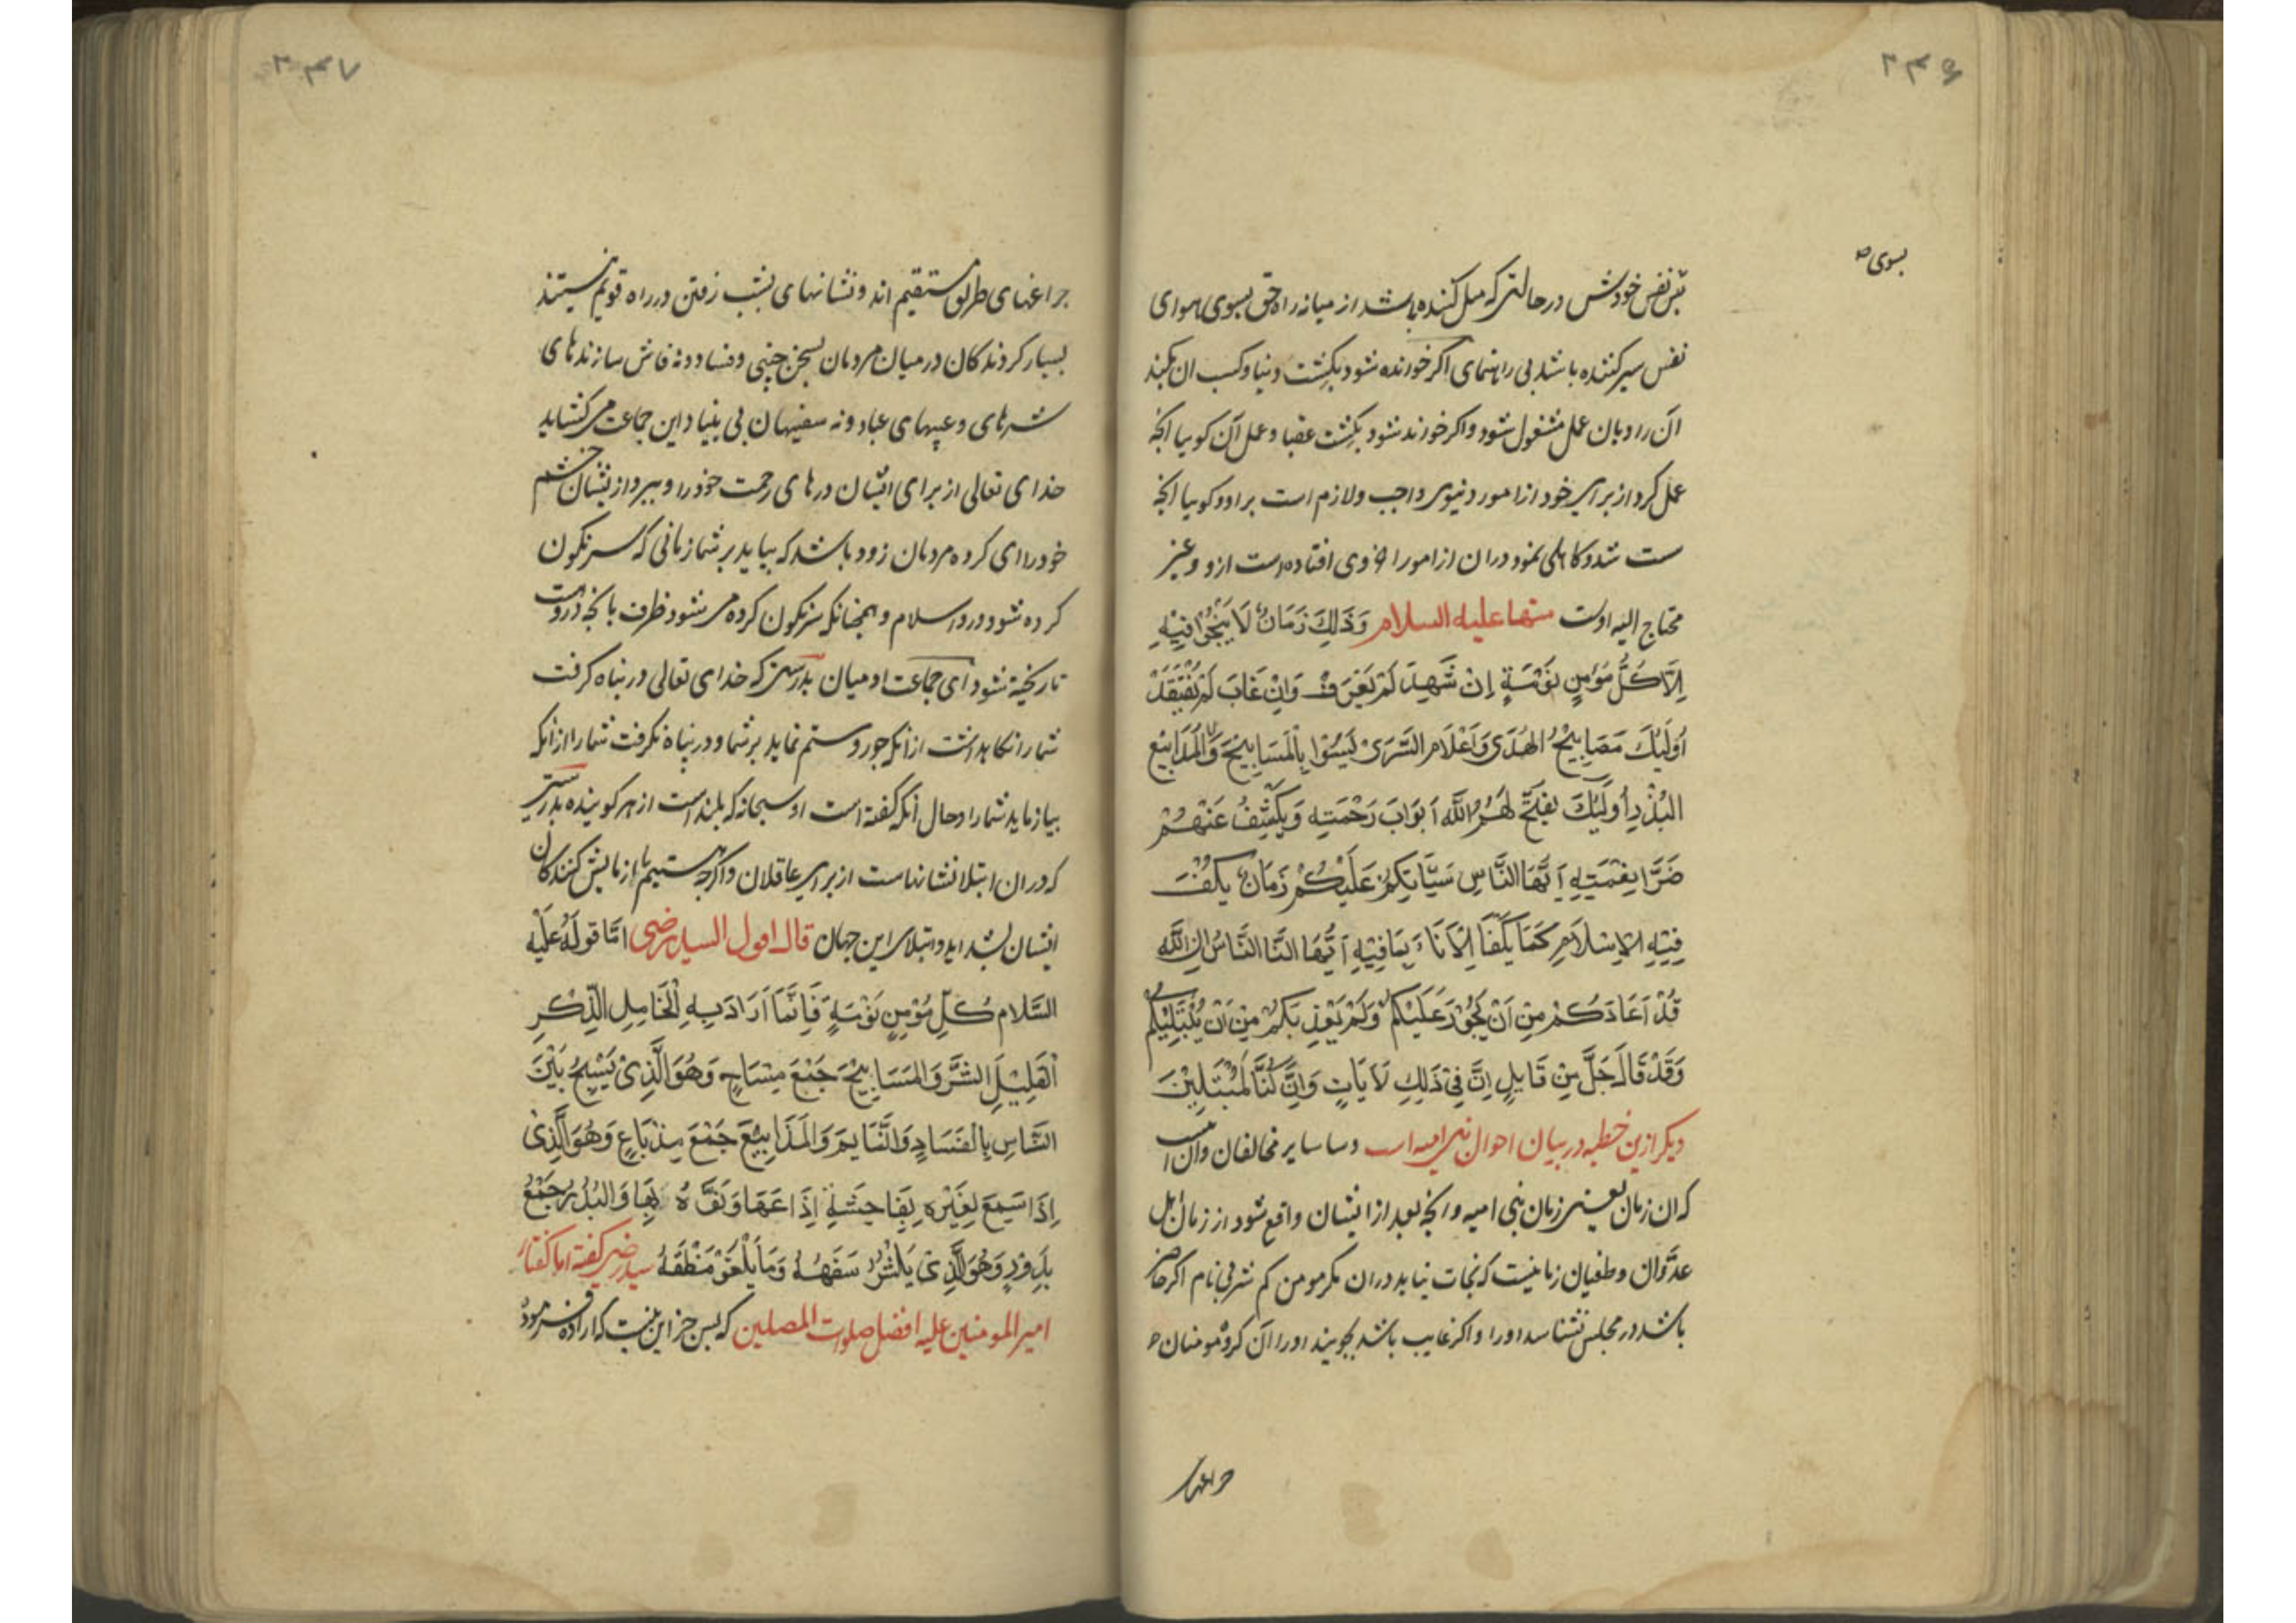 ۲۳۶
بسوی
بس نفس خودش در حالتی که میل کننده باشد از میانه راه حق بسوی هوای
نفس سیر کننده باشد بی راهنمای اکر خوانده شود بکشت دنیا وکسب ان بکند
آن را وبان عمل مشغول شود واکر خوانده شود بکشت عقبا وعمل آن کوییا انچه
عمل کرد از برای خود از امور دنیوی واجب ولازم است بر او وکوییا انچه
سست شد وکاهلی نمود دران از امور اخروی افتاده است ازو وغیر
محتاج الیه اوست منها علیه السلام وَذَلِكَ زَمَانٌ لَا يَنْجُوا فِيْهِ
اِلَّا كُلُّ مُؤمِنٍ نَوْمَةٍ اِنْ شَهِدَ لَمْ يُعْرَفْ وَاِنْ غَابَ لَمْ يُفْتَقَدْ
اُولَئِكَ مَصَابِيْحُ الهُدَى وَاَعْلَام السَّرَى لَيْسُوْا بِالْمَسَابِيْحِ وَلَا الْمَذَابِيْعِ
البُذْرِ اُولَئِكَ يَفْتَحُ لَهُمُ اللَّه اَبوَابَ رَحْمَتِه وَيَكْشِفُ عَنْهُمْ
ضَرَّا نِقْمَتِهِ اَيُّهَا النَّاسِ سَيَأتِيكُمْ عَلَيْكُمْ زَمَانٌ يكْفَفُ
فِيْهِ الاِسْلَامِ كَمَا يُكْفَا الْاِنَاءُ بِمَا فِيْهِ اَيُّهَا النَّا النَّاسُ اِنَّ اللَّه
قَدْ اَعَاذَكُمْ مِنْ اَنْ يَجُوْرَ عَلَيْكُمْ وَلَمْ يُعِذْبَكُمْ مِنْ اَنْ يَبْتَلِيْكُمْ
وَقَدْ قَالَ جَلَّ مِنْ قَايِلٍ اِنَّ فِيْ ذَلِكِ لَاَيَاتٍ وَاِنْ كُنَّا لَمُبْتَلِيْنَ
دیکر ازین خطبه در بیان احوال بنی امیه است وسا سایر مخالفان وان
که ان زمان یعنی زمان بنی امیه وانچه بعد از ایشان واقع شود از زمان اهل
عدوان وطغیان زمانیست که نجات نیابد دران مکر مومن کم شر بی نام اکر حاضر
باشد در مجلس نشناسد اورا واکر غایب باشد نجویند اورا آن کروه مومنان
چراغهای
۲۳۷
چراغهای طریق مستقیم اند ونشانهای بشب رفتن در راه قویم نیستند
بسیار کردندکان در میان مردمان بسخن چینی وفساد ونه فاش سازندهای
شرهای وعیبهای عباد ونه سفیهان بی بنیاد این جماعت می کشاید
خدای تعالی از برای ایشان درهای رحمت خود را ومیبرد از ایشان خشم
خود را ای کروه مردمان زود باشد که بیاید بر شما زمانی که سرنکون
کرده شود درو اسلام وهمچنانکه سرنکون کرده می شود ظرف بانچه دروست
تا ریخته شود ای جماعت ادمیان بدرستی که خدای تعالی در پناه کرفت
شما را نکاه داشت از انکه جور وستم نماید بر شما ودر پناه نکرفت شما را از انکه
بیازماید شما را وحال آنکه کفته است او سبحانه که بلند است از هر کوینده بدرستی
که دران ابتلا نشانهاست از برای عاقلان واکرچه هستیم ما ازمایش کنندکان
ایشان بشداید وابتلای این جهان قال اقول السید رضی امّا قولَهُ عَلَيْه
السَّلام كُلّ مُؤْمِنٍ نَوْمَةٍ فَاِنَّمَا اَرَادَ بِهِ الْخَامِلِ الذِّكْرِ
الْقَلِيْلَ الشَّرِّ وَالمَسَابِيْحَ جَمْعَ مِسْيَاحٍ وَهُوَ الَّذِىْ يَسِيْحُ بَيْنَ
النَّاسِ بِالْفَسَادِ وَالنَّمَايِمِ وَالمَذَابِيْعَ جَمْعَ مِذْيَاعٍ وَهُوَ الَّذِىْ
اِذَا سَمِعَ لِغَيْرِهِ بِفَاحِشَةٍ اِذَاعَهَا وَنَوَّهَ بِهَا وَالبُذُرُ جَمْعُ
بَذُوْرٍ وَهُوَ الَّذِىْ يَكْثُرُ سَفَهُهُ وَمَا يَلْغُوْ مَنْطَقَهُ سید رضی کفته اما کفتار
امیر المومنین علیه افضل صلوات المصلین که پس جز این نیست که اراده فرموده